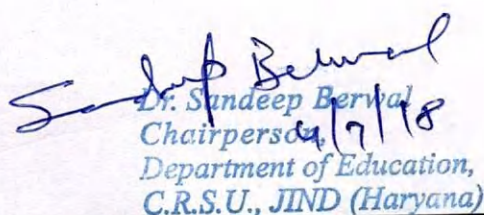 Sandeep Berwal
Dr. Sandeep Berwal
Chairperson,
4/7/18
Department of Education,
C.R.S.U., JIND (Haryana)